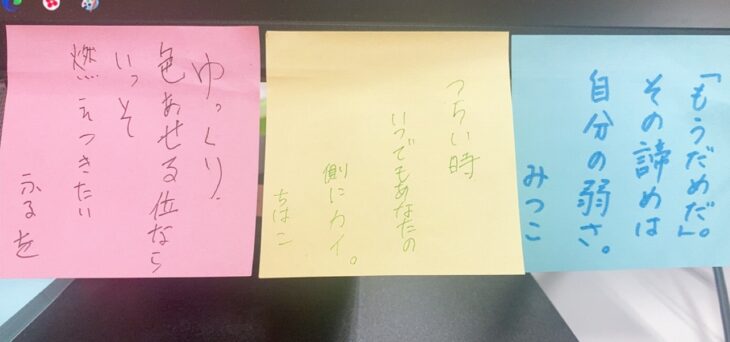 「もうだめだ」。
その諦めは
自分の弱さ。
みつこ
つらい時
いつでもあなたの
側にカイ。
ちはこ
ゆっくり、
色あせる位なら
いっそ
燃えつきたい
ふるを